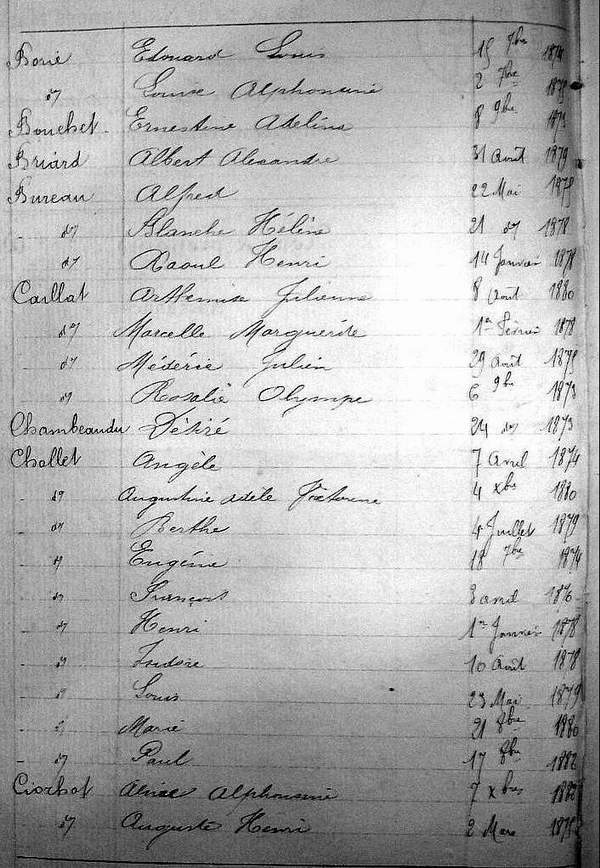 Borié Edouard Louis 15 7bre 1874
dº Louise Alphonsine 2 7bre 1879
Bouchet Ernestine Adelina 8 9bre 1873
Briard Albert Alexandre 31 Août 1879
Bureau Alfred 22 Mai 1875
dº Blanche Hélène 21 dº 1878
dº Raoul Henri 14 Janvier 1878
Caillat Arthemise Julienne 8 Août 1880
dº Marcelle Marguerite 1er Février 1878
dº Médéric Julien 29 Août 1875
dº Rosalie Olympe 6 9bre 1873
Chambeaudu Désiré 24 dº 1873
Chollet Angèle 7 Avril 1874
dº Augustine Adèle 4 xbre 1880
dº Berthe 4 Juillet 1879
dº Eugénie 18 7bre 1874
dº François 3 avril 1876
dº Henri 1er Janvier 1878
dº Isidore 10 Août 1878
dº Louis 23 Mai 1879
dº Marie 21 8bre 1880
dº Paul 17 8bre 1882
Ciorbot Alphonsine 7 xbre 1882
dº Auguste Henri 2 Mars